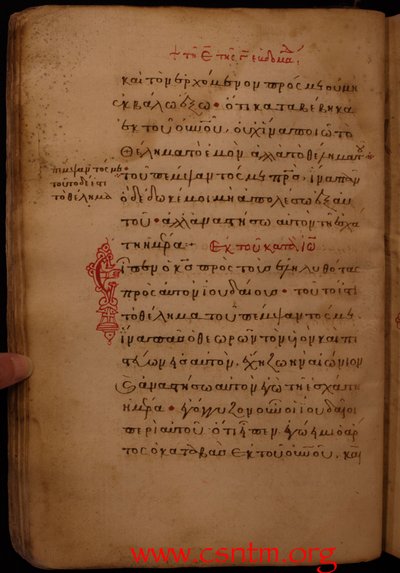 καὶ τὸν ἐρχόμενον πρός με οὐ μὴ
ἐκβάλω ἔξω · ὅτι καταβέβηκα
ἐκ τοῦ οὐνοῦ, οὐχ ἵνα ποιῶ τὸ
θέλημα τὸ ἐμὸν ἀλλὰ τὸ θέλημα
πέμψαντός με
τοῦτο δέ ἐστι
τὸ θέλημα
τοῦ πέμψαντός με πρς, ἵνα πᾶν
ὃ δέδωκέ μοι μὴ ἀπολέσω ἐξ αυ
τοῦ · ἀλλὰ ἀναστήσω αὐτὸν τῇ ἐσχά
τη ἡμρα + Ἐκ τοῦ κατὰ Ἰω
Εἶπεν ὁ κς πρὸς τοὺς ἐληλυθότας
πρὸς αὐτὸν ἰουδαίους · τοῦτό ἐστι
τὸ θέλημα τοῦ πέμψαντός με
ἵνα πᾶς ὁ θεωρῶν τὸν υἱὸν καὶ πι
στεύων εἰς αὐτὸν, ἔχῃ ζωὴν αἰώνιον
καὶ ἀναστήσω αὐτὸν ἐγὼ τῇ ἐσχάτη
ἡμρα · ἐγόγγυζον οὖν οἱ ἰουδαῖοι
περὶ αὐτοῦ ὅτι εἶπεν ἐγώ εἰμι ὁ ἄρ
τος ὁ καταβὰς ἐκ τοῦ οὐνοῦ, καὶ
www.csntm.org